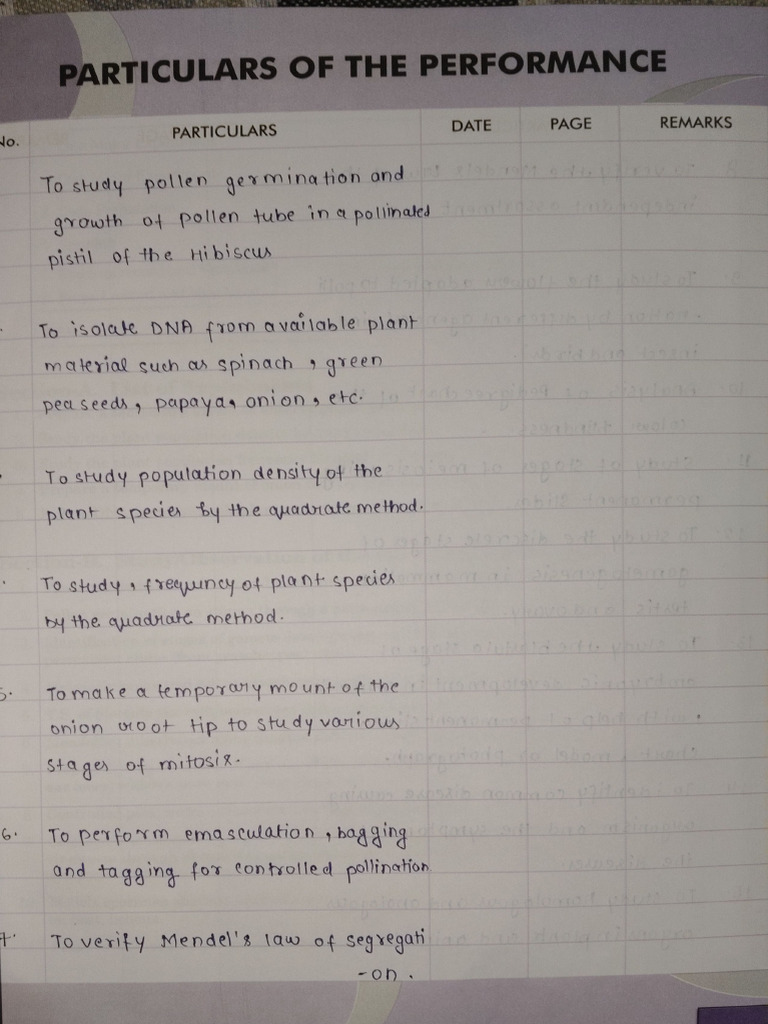 PARTICULARS OF THE PERFORMANCE
No. PARTICULARS DATE PAGE REMARKS
To study pollen germination and
growth of pollen tube in a pollinated
pistil of the Hibiscus
To isolate DNA from available plant
material such as spinach, green
pea seeds, papaya, onion, etc.
To study population density of the
plant species by the quadrate method.
To study, frequncy of plant species
by the quadrate method.
5. To make a temporary mount of the
onion root tip to study various
stages of mitosis.
6. To perform emasculation, bagging
and tagging for controlled pollination
7. To verify Mendel's law of segregati
-on.